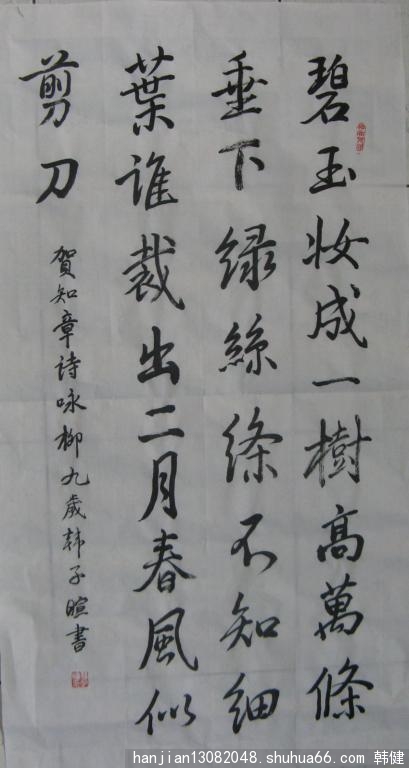 碧玉妆成一樹高萬條
垂下绿絲绦不知细
葉誰裁出二月春風似
剪刀
賀知章詩咏柳九歲韩子暄書
hanjian13082048.shuhua66.com 韩健